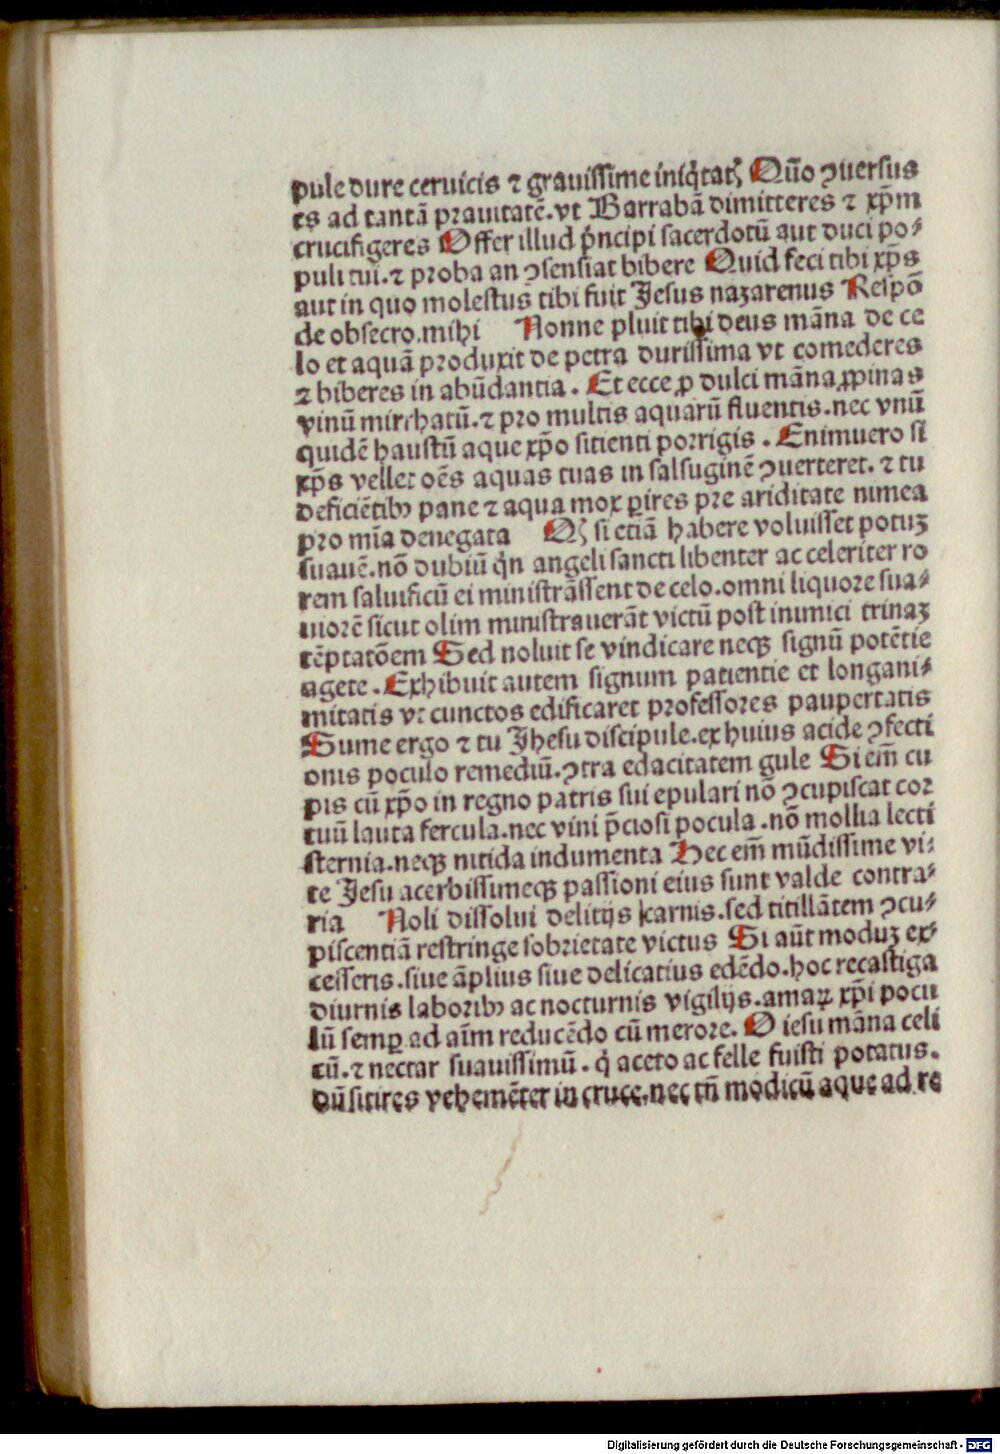 pule dure ceruicis ⁊ grauissime iniq̇tatꝭ Quō ꝯuersus
es ad tantā prauitatē.vt Barrabā dimitteres ⁊ xp̄m
crucifigeres Offer illud pͥncipi sacerdotū aut duci po⸗
puli tui.⁊ proba an ꝯsentiat bibere Quid feci tibi xp̄s
aut in quo molestus tibi fuit Jesus nazarenus Respō
de obsecro.mihi Nonne pluit tibi deus māna de ce
lo et aquā produxit de petra durissima vt comederes
⁊ biberes in abūdantia. Et ecce ꝓ dulci māna ꝓpinas
vinū mirrhatū.⁊ pro multis aquarū fluentis.nec vnū
quidē haustū aque xp̄o sitienti porrigis. Enimuero si
xp̄s vellet oēs aquas tuas in salsuginē ꝯuerteret.⁊ tu
deficiētibꝰ pane ⁊ aqua mox ꝑires pre ariditate nimea
pro mīa denegata Qꝫ si etiā habere voluisset potuꝫ
suauē.nō dubiū qͥn angeli sancti libenter ac celeriter ro
rem saluificū ei ministrāssent de celo.omni liquore sua⸗
uiorē sicut olim ministrauerāt victū post inimici trinaꝫ
tēptatōem Sed noluit se vindicare neqꝫ signū potētie
agere. Exhibuit autem signum patientie et longani⸗
mitatis vt cunctos edificaret professores paupertatis
Sume ergo ⁊ tu Jhesu discipule.ex huius acide ꝯfecti
onis poculo remediū.ꝯtra edacitatem gule Si em̄ cu
pis cū xp̄o in regno patris sui epulari nō ꝯcupiscat cor
tuū lauta fercula.nec vini p̄ciosi pocula.nō mollia lecti
sternia.neqꝫ nitida indumenta Hec em̄ mūdissime vi⸗
te Jesu acerbissimeqꝫ passioni eius sunt valde contra⸗
ria Noli dissolui delitijs carnis.sed titillātem ꝯcu⸗
piscentiā restringe sobrietate victus Si aūt moduꝫ ex⸗
cesseris.siue āplius siue delicatius edēdo.hoc recastiga
diurnis laboribꝰ ac nocturnis vigilijs.amaꝝ xp̄i pocu
lū semꝑ ad aīm reducēdo cū merore. O iesu māna celi
cū.⁊ nectar suauissimū.qͥ aceto ac felle fuisti potatus.
dū sitires vehemēter in cruce.nec tn̄ modicū aque ad re
Digitalisierung gefördert durch die Deutsche Forschungsgemeinschaft - DFG